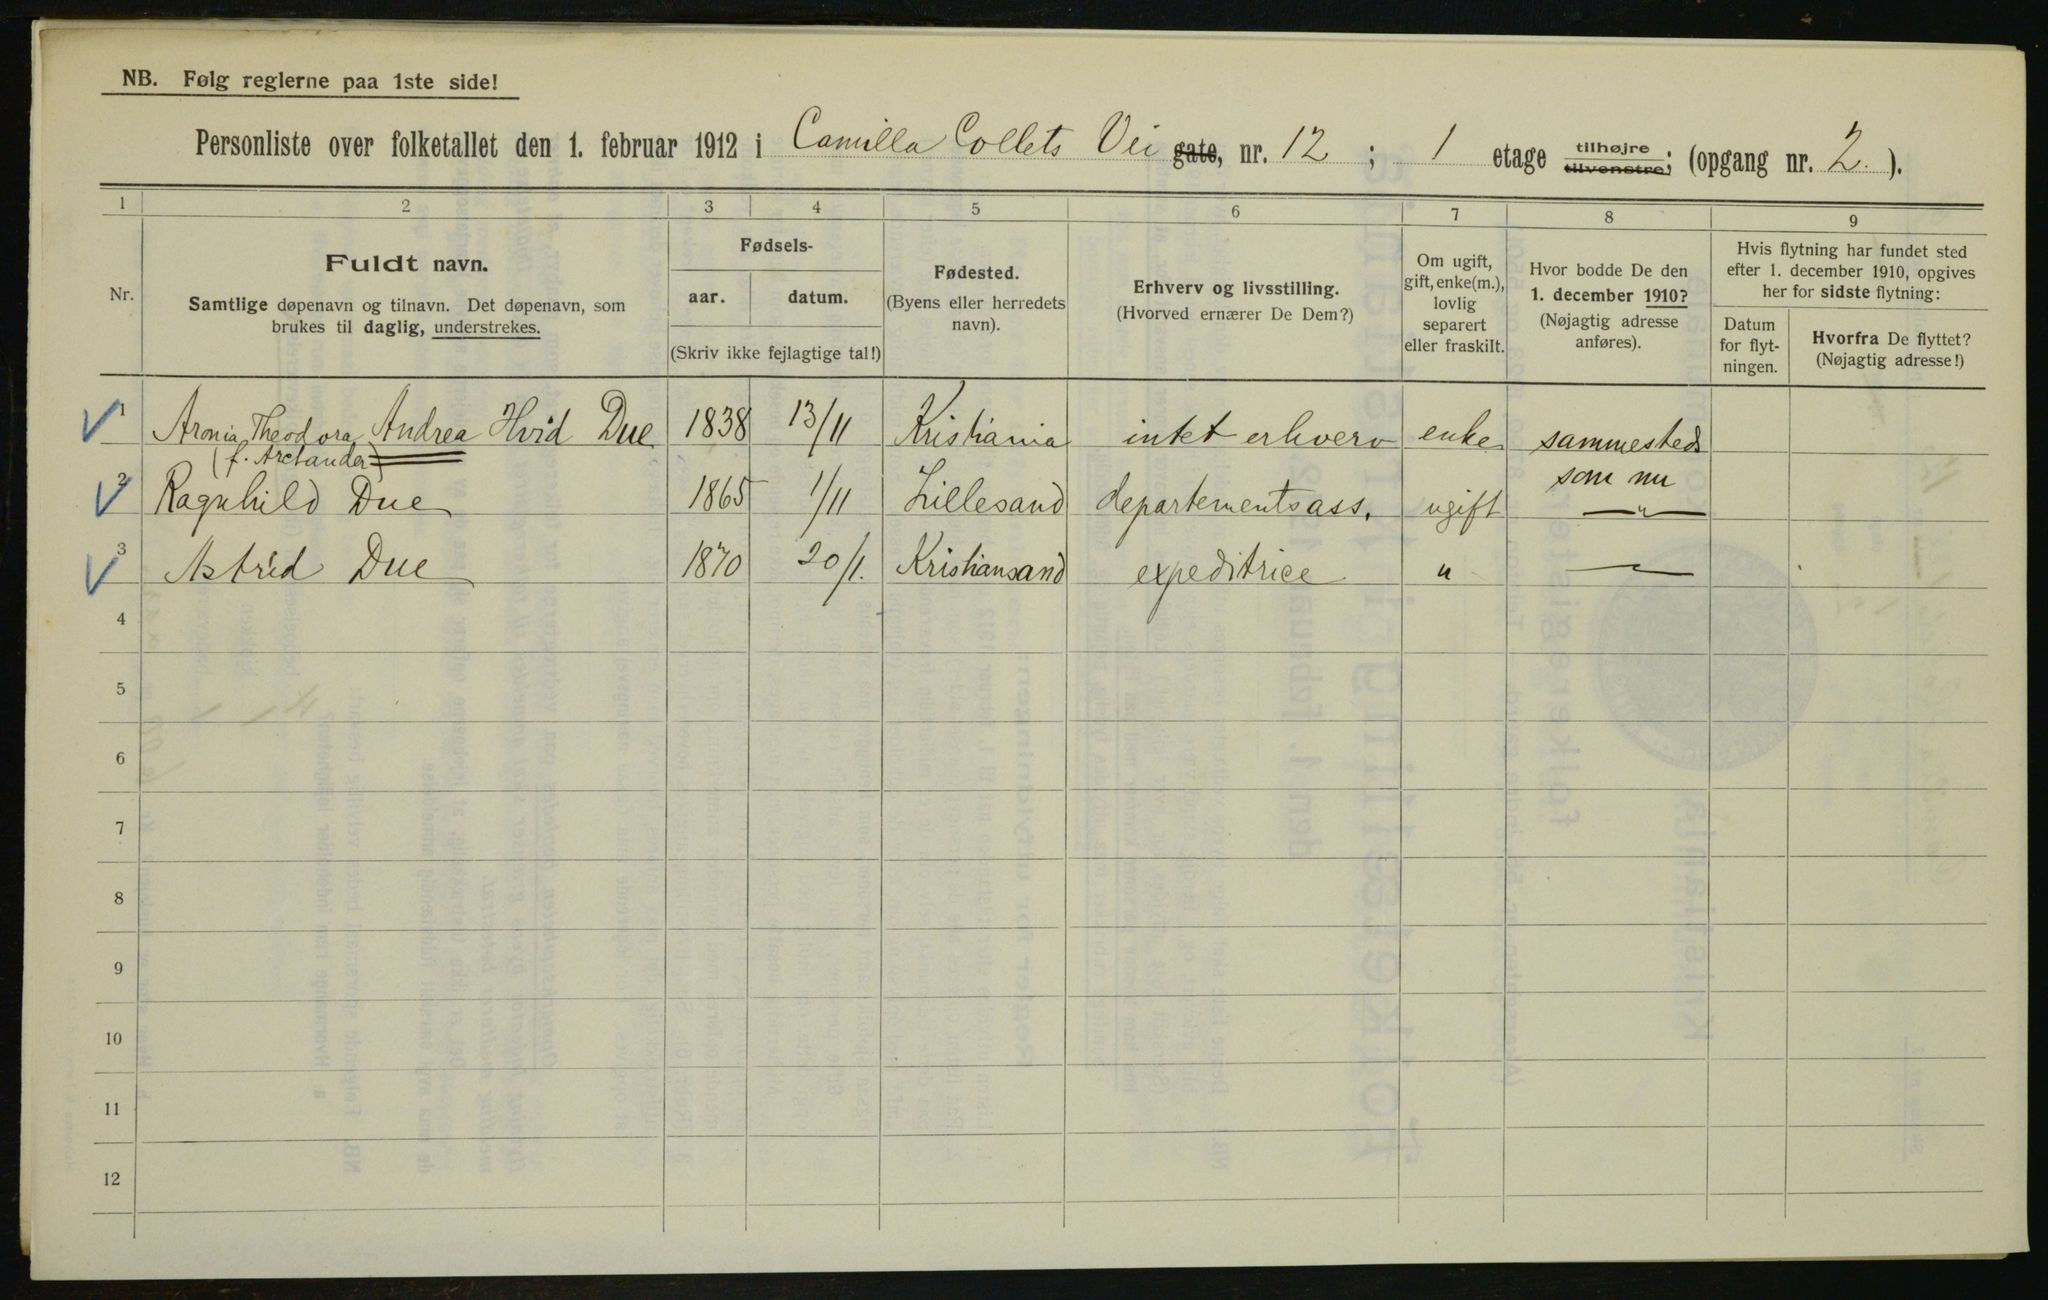 NB. Følg reglerne paa 1ste side!
Personliste over folketallet den 1. februar 1912 i Camilla Collets Vei gate, nr. 12 ; 1 etage tilhøjre tilvenstre; (opgang nr. 2. ).
1 2 3 4 5 6 7 8 9
Nr.
Fuldt navn.
Samtlige døpenavn og tilnavn. Det døpenavn, som
brukes til daglig, understrekes.
Fødsels-
aar. datum.
(Skriv ikke fejlagtige tal!)
Fødested.
(Byens eller herredets
navn).
Erhverv og livsstilling.
(Hvorved ernærer De Dem?)
Om ugift,
gift, enke(m.),
lovlig
separert
eller fraskilt.
Hvor bodde De den
1. december 1910?
(Nøjagtig adresse
anføres).
Hvis flytning har fundet sted
efter 1. december 1910, opgives
her for sidste flytning:
Datum
for flyt-
ningen.
Hvorfra De flyttet?
(Nøjagtig adresse!)
1 Aronia Theodora Andrea Hvid Due 1838 13/11 Kristiania intet erhverv enke sammesteds
(f. Arctander) som nu
2 Ragnhild Due 1865 1/11 Lillesand departementsass. ugift — " —
3 Astrid Due 1870 20/1. Kristiansand expeditrice " —
4
5
6
7
8
9
10
11
12